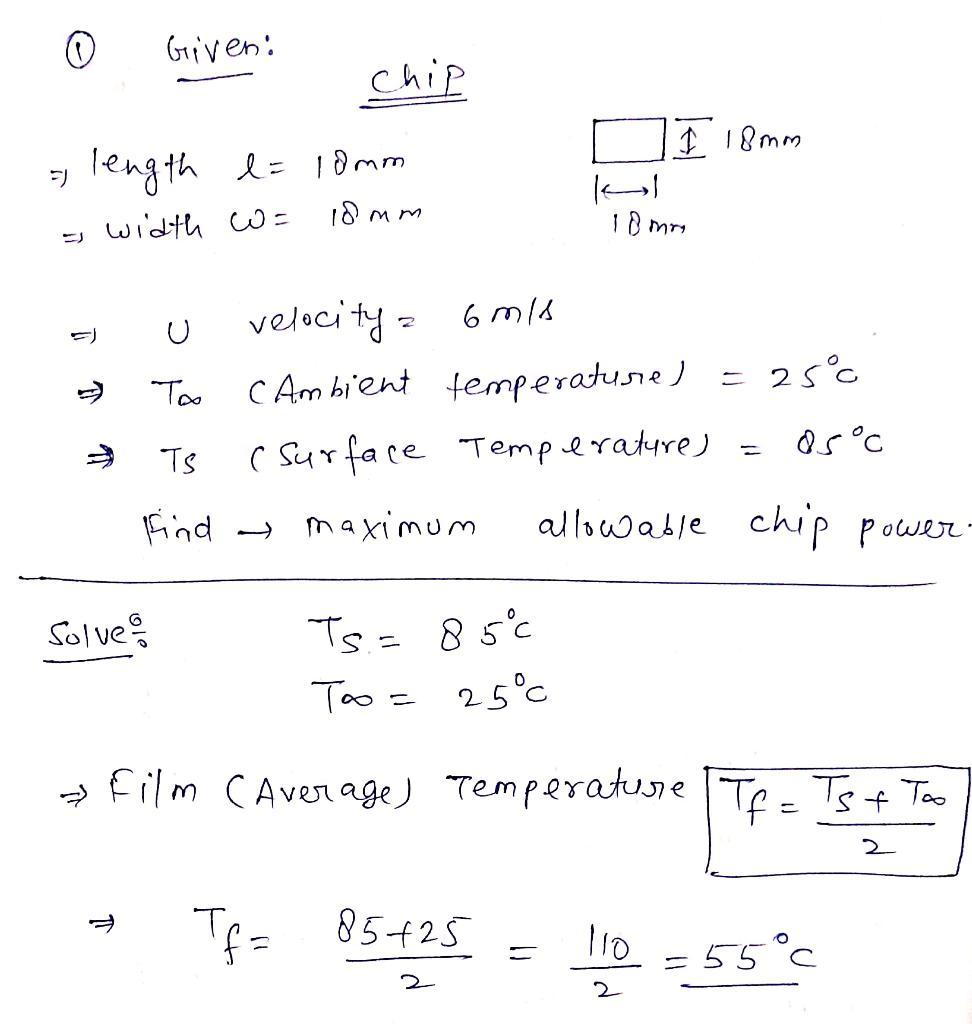 ① Given:
chip
⇒ length l = 18mm
18mm
⇒ width w = 18 mm
18 mm
⇒ U velocity = 6 m/s
⇒ T∞ (Ambient temperature) = 25°C
⇒ Ts (Surface Temperature) = 85°C
Find → maximum allowable chip power.
Solve:
Ts = 85°C
T∞ = 25°C
⇒ Film (Average) Temperature Tf = Ts + T∞ / 2
⇒ Tf = 85+25 / 2 = 110 / 2 = 55°C